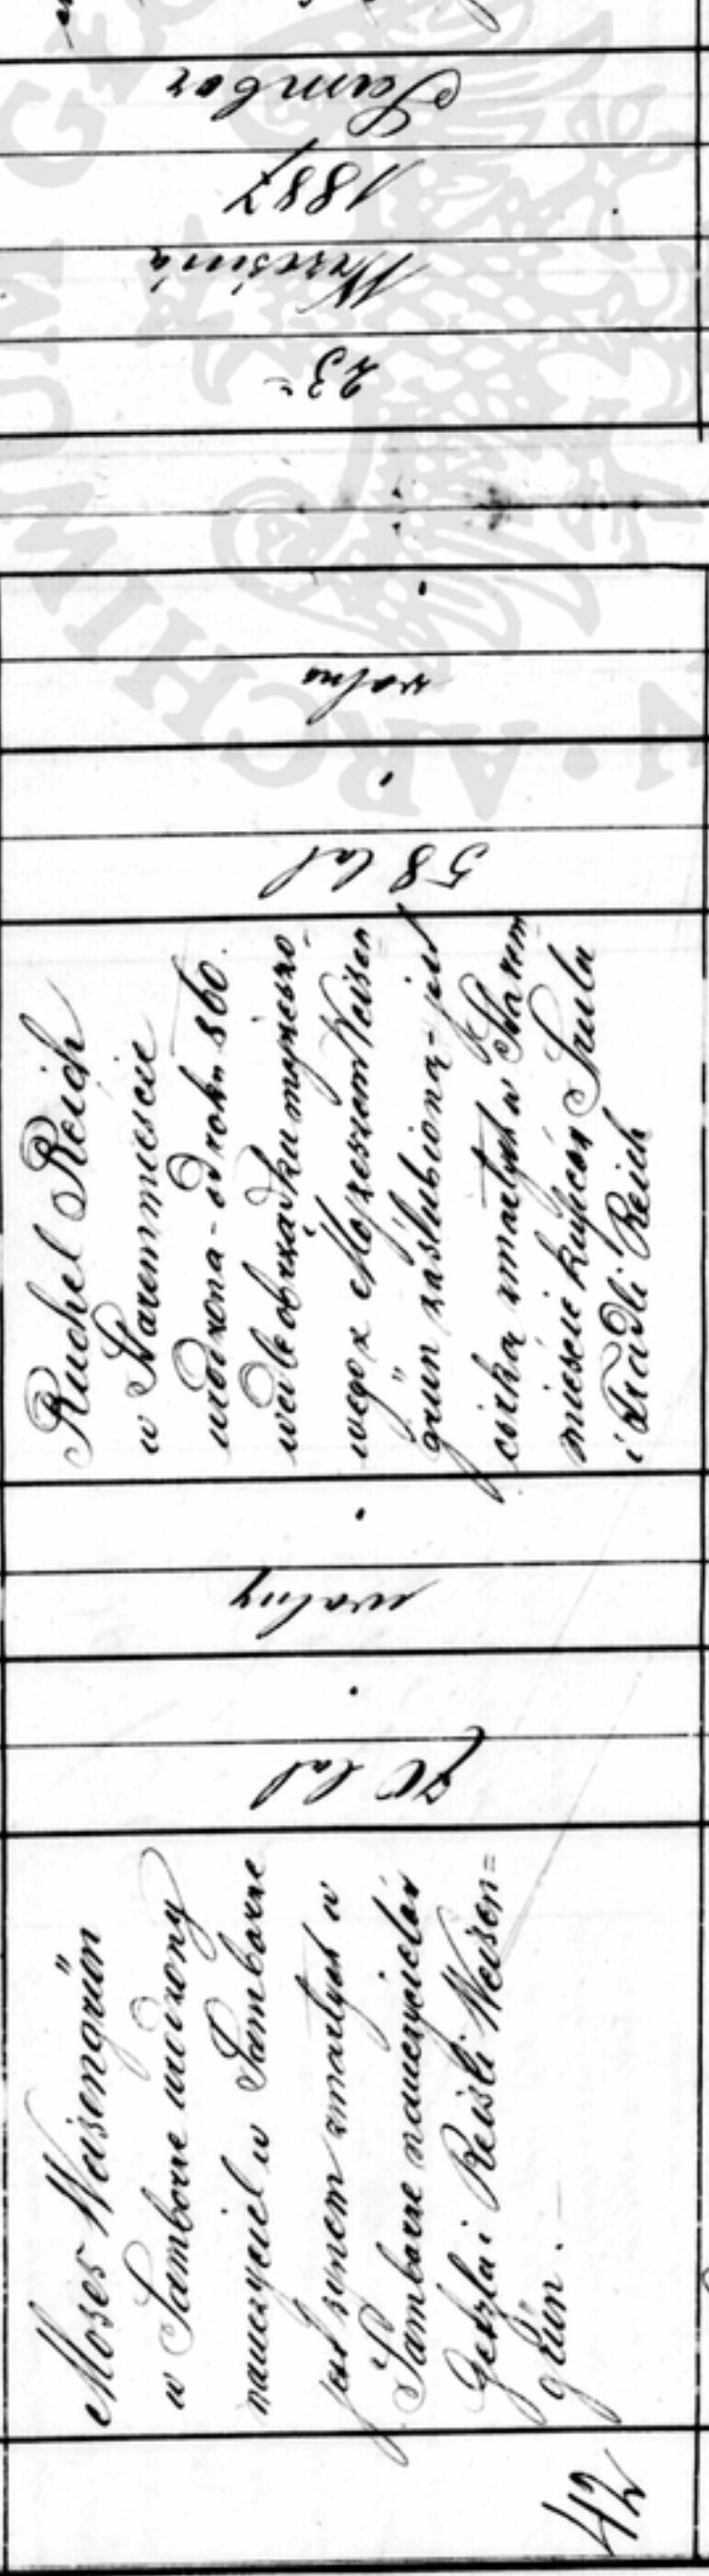 42
Moses Weisengrün
w Samborze urodzony
nauczyciel w Samborze
jest synem zmarłych w
Samborze nauczycielów
Getzla i Reisli Weisen=
grün.
70 lat
wolny
Ruchel Reich
w Staremmieście
urodzona - od roku 860.
wedle obrządku mojżeszo-
wego z Mojżeszem Weisen=
grün zaślubiona - jest
córką zmarłych w Starem=
mieście kupców Szula
i Freidli Reich
58 lat
wolna
23=
Września
1887
Sambor
ARCHIWUM